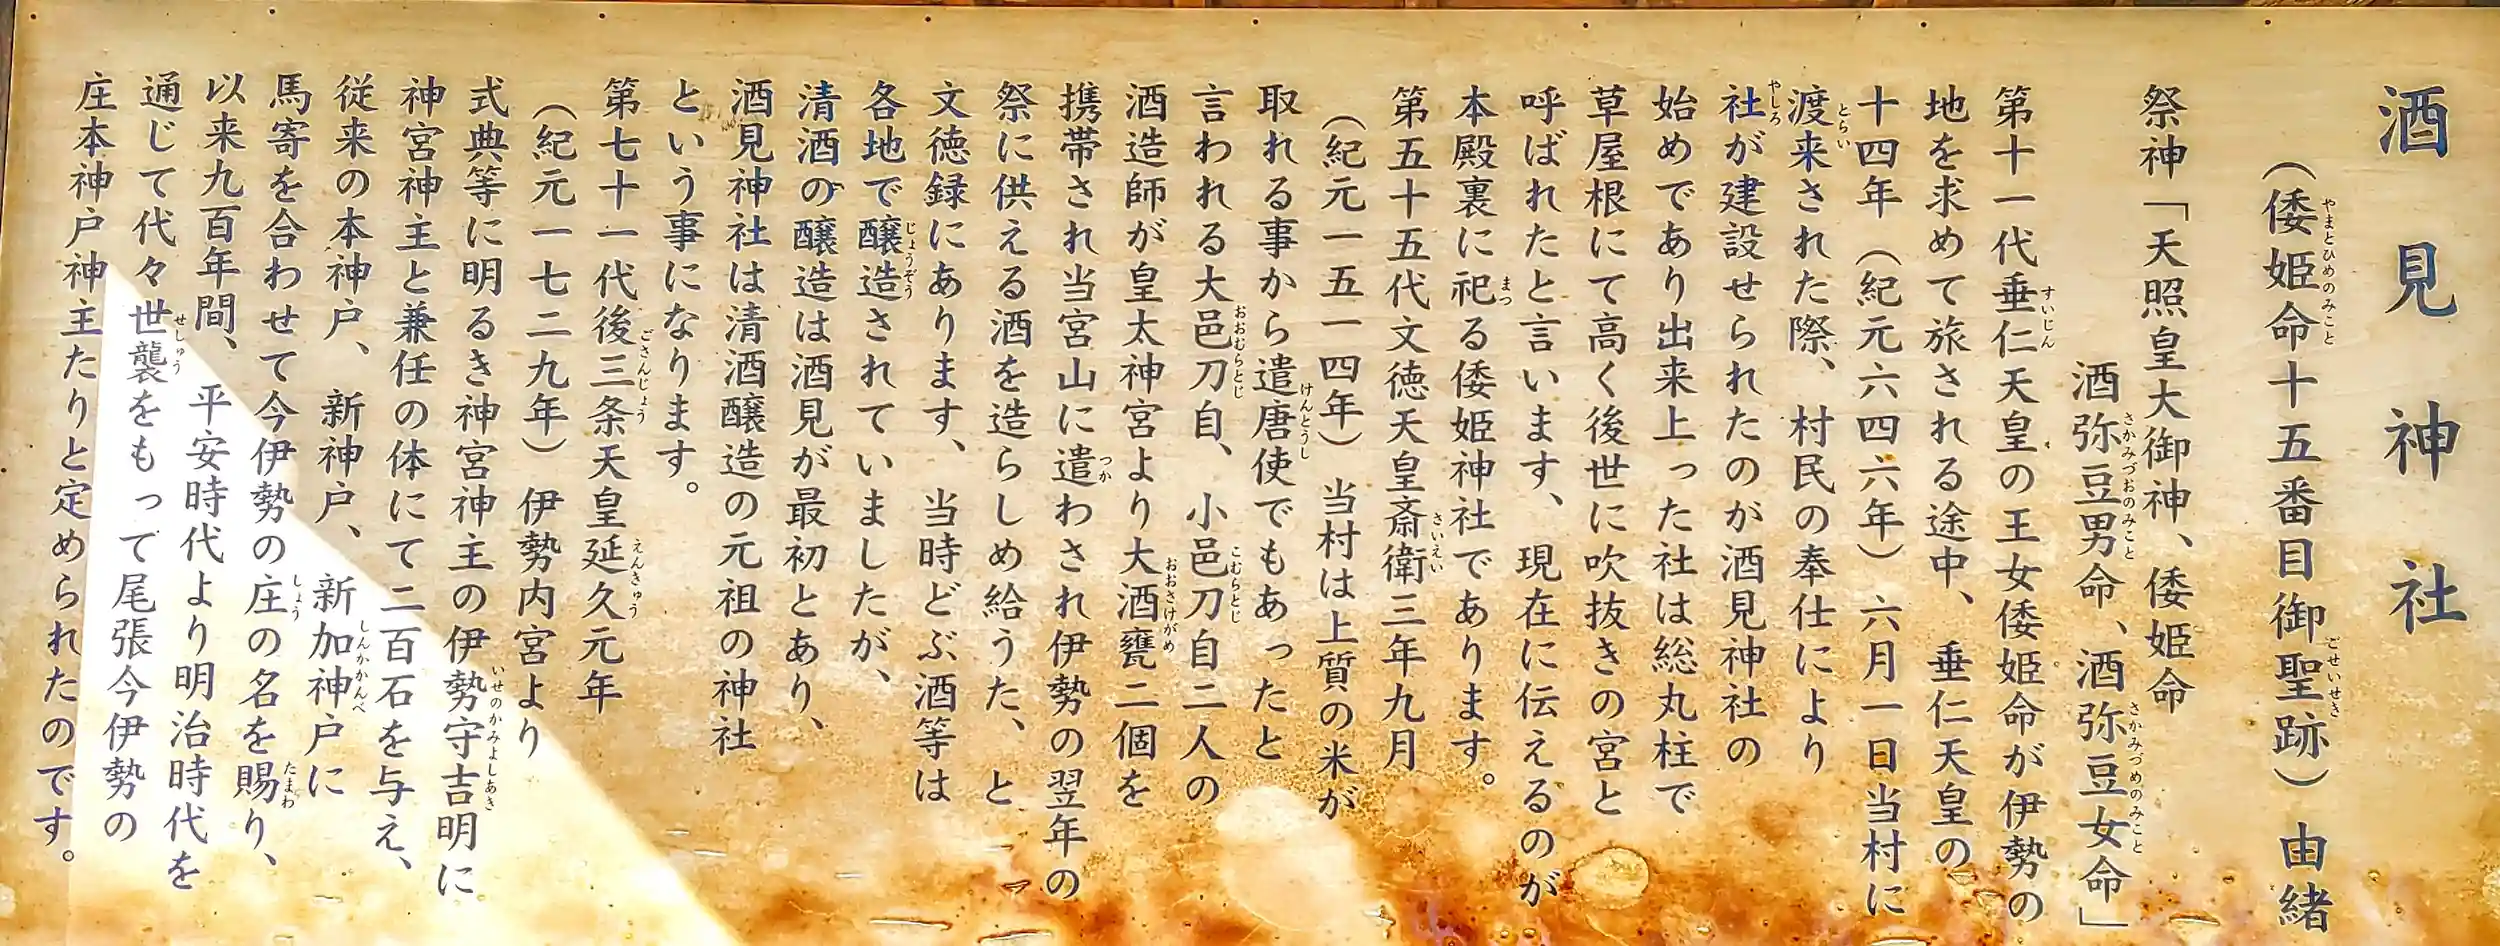 酒見神社
（倭姫命十五番目御聖跡）由緒
やまとひめのみこと
ごせいせき
祭神「天照皇大御神、倭姫命
酒弥豆男命、酒弥豆女命」
さかみづおのみこと
さかみづめのみこと
第十一代垂仁天皇の王女倭姫命が伊勢の
すいじん
地を求めて旅される途中、垂仁天皇の
十四年（紀元六四六年）六月一日当村に
渡来された際、村民の奉仕により
とらい
社が建設せられたのが酒見神社の
やしろ
始めであり出来上った社は総丸柱で
草屋根にて高く後世に吹抜きの宮と
呼ばれたと言います、現在に伝えるのが
本殿裏に祀る倭姫神社であります。
まつ
第五十五代文徳天皇斎衛三年九月
さいえい
（紀元一五一四年）当村は上質の米が
取れる事から遣唐使でもあったと
けんとうし
言われる大邑刀自、小邑刀自二人の
おおむらとじ
こむらとじ
酒造師が皇太神宮より大酒甕二個を
おおさけがめ
携帯され当宮山に遣わされ伊勢の翌年の
つか
祭に供える酒を造らしめ給うた、と
文徳録にあります、当時どぶ酒等は
各地で醸造されていましたが、
じょうぞう
清酒の醸造は酒見が最初とあり、
酒見神社は清酒醸造の元祖の神社
という事になります。
第七十一代後三条天皇延久元年
ごさんじょう
えんきゅう
（紀元一七二九年）伊勢内宮より
式典等に明るき神宮神主の伊勢守吉明に
いせのかみよしあき
神宮神主と兼任の体にて二百石を与え、
従来の本神戸、新神戸、新加神戸に
しんかかんべ
馬寄を合わせて今伊勢の庄の名を賜り、
しょう
たまわ
以来九百年間、平安時代より明治時代を
通じて代々世襲をもって尾張今伊勢の
せしゅう
庄本神戸神主たりと定められたのです。